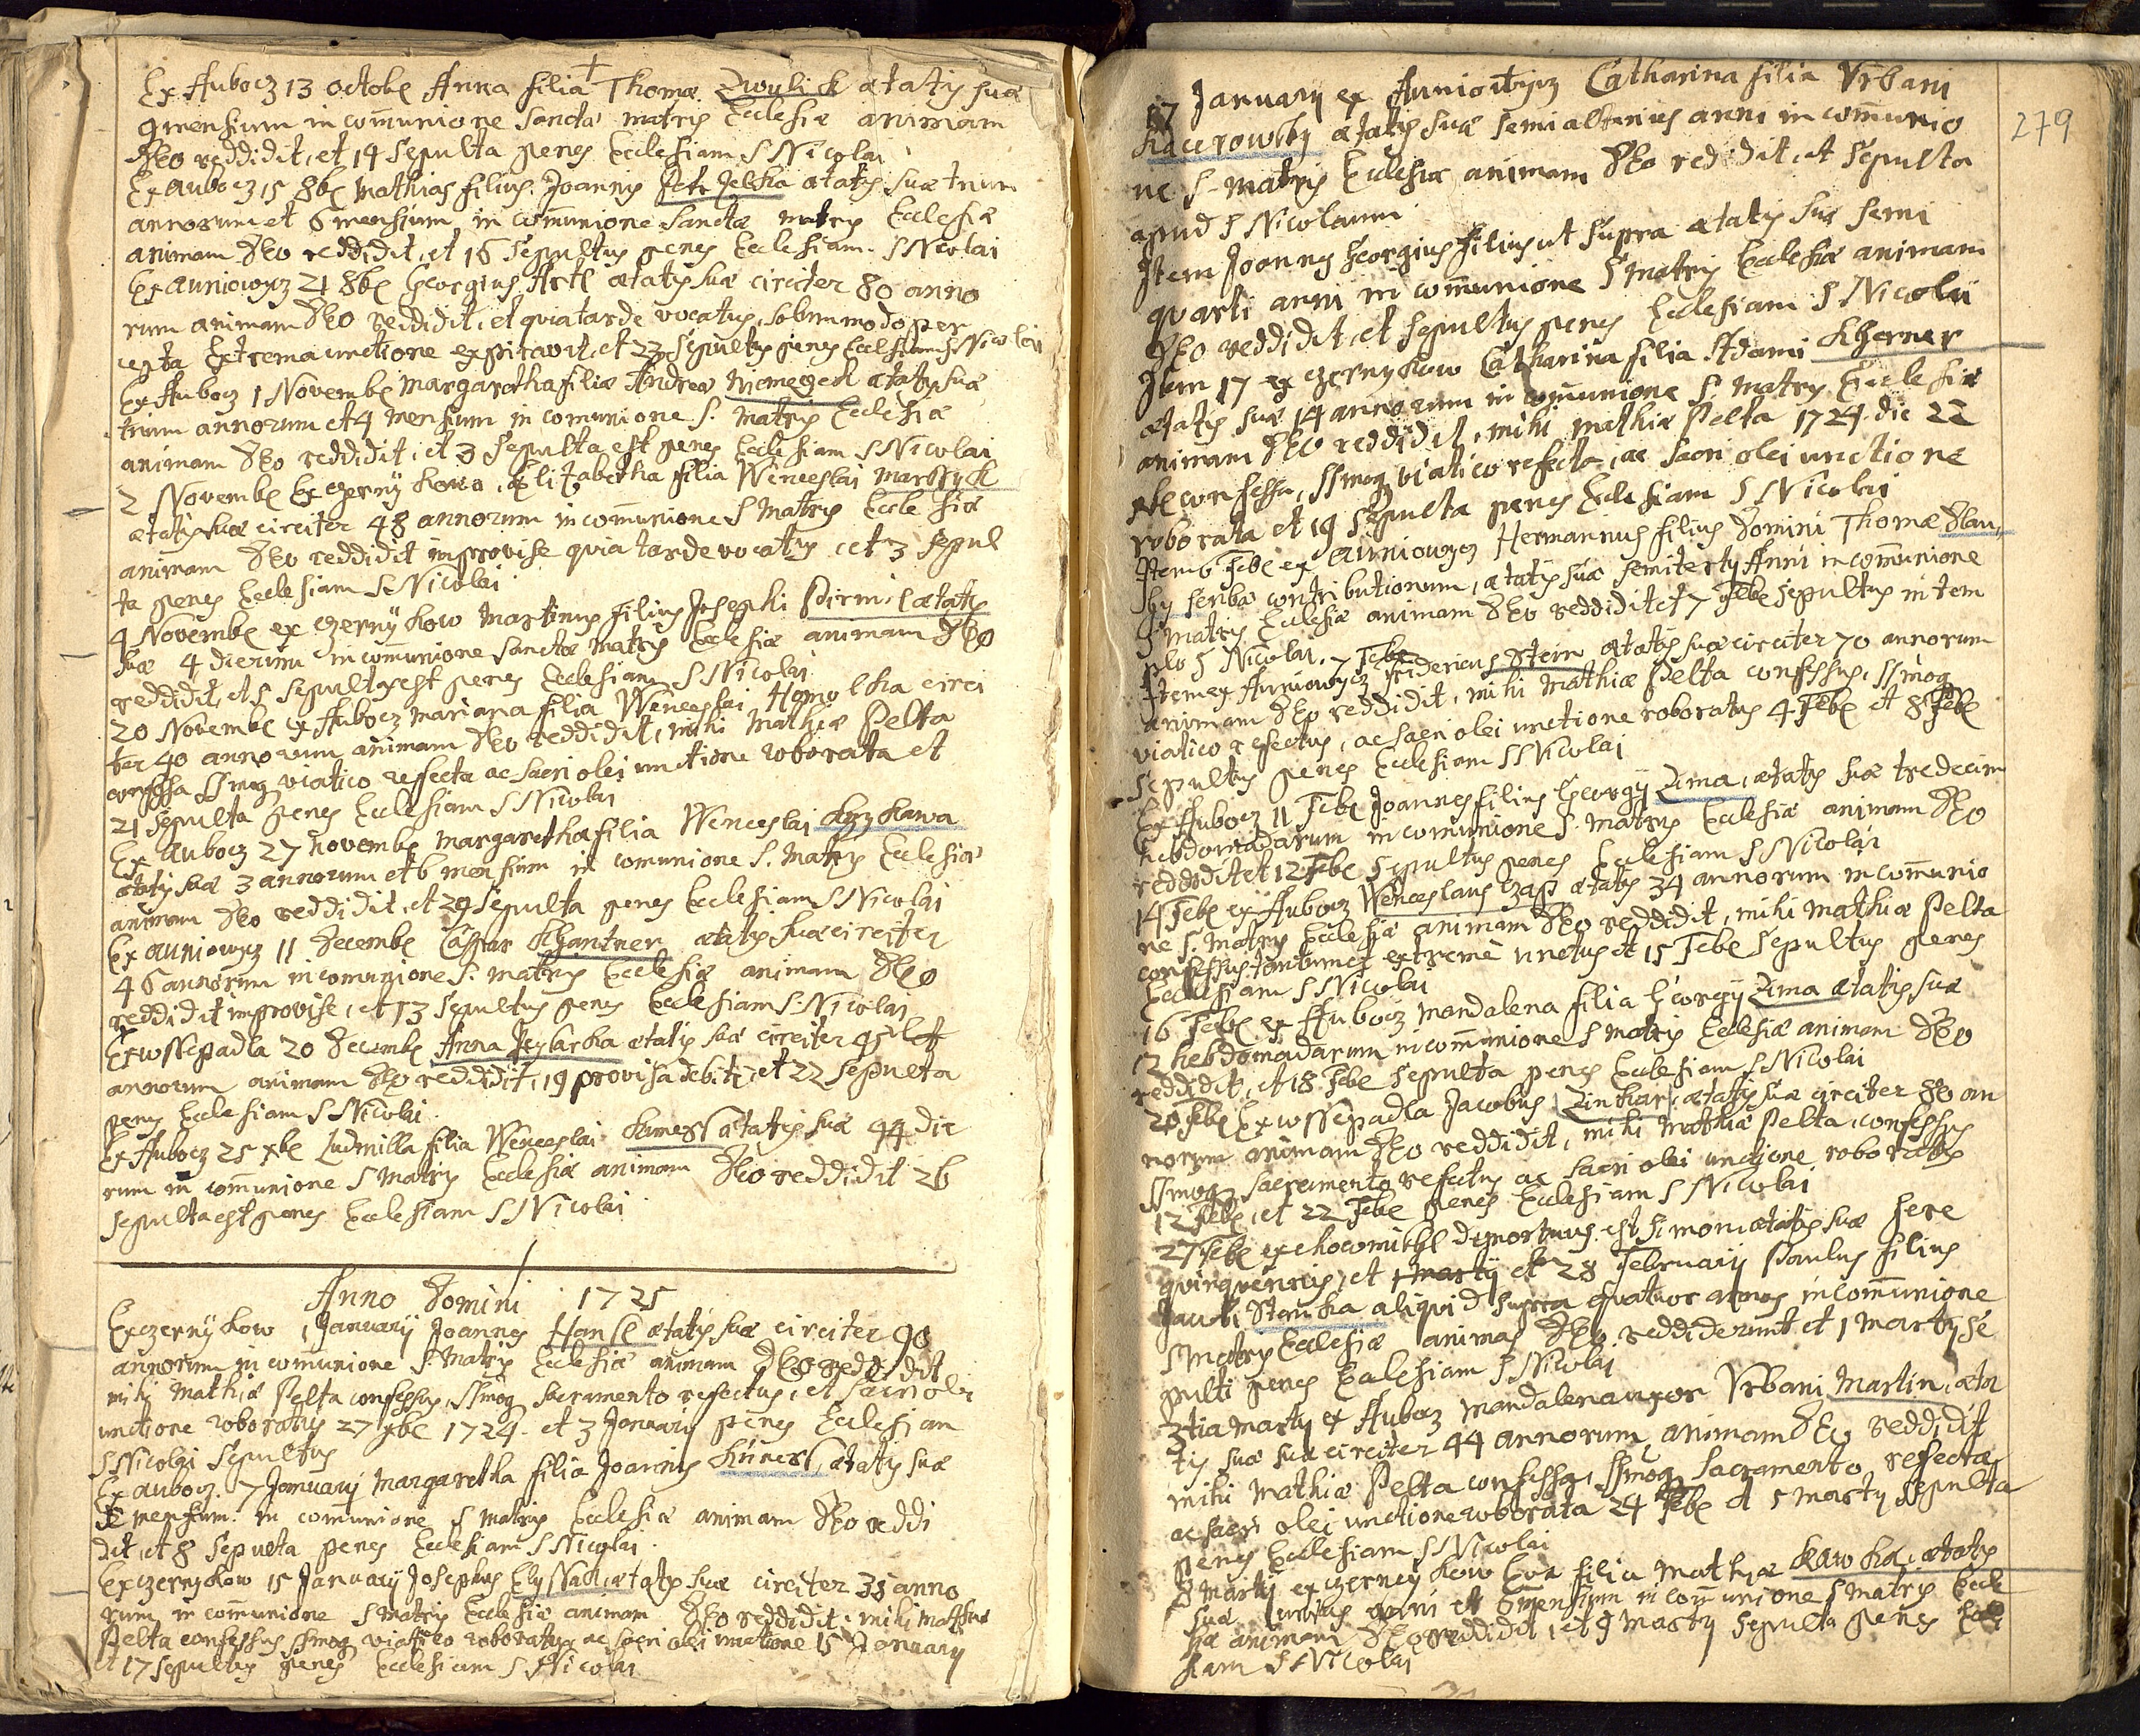 Ex Aubocz 13 octobr Anna filia Thomæ Zwulik ætatis suæ
9 mensium in com̄unione Sanctæ matris Ecclesiæ animam
Deo reddidit, et 14 sepulta penes Ecclesiam S Nicolai
Ex aubocz 15 8br Mathias filius Joannis Petr Jelka ætatis suæ trium
annorum et 6 mensium in com̄unione Sanctæ matris Ecclesiæ
animam Deo reddidit, et 16 sepultus penes Ecclesiam S Nicolai
Ex auniowycz 21 8br Georgius Artl ætatis suæ circiter 80 anno
rum animam Deo reddidit, et quia tarde vocatus, solummodo per
cepta Extrema unctione expiravit, et 23 sepultus penes Ecclesiam S Nicolai
Ex Aubocz 1 Novembr Margaretha filia Andreæ Nemeczek ætatis suæ
trium annorum et 4 mensium in comunione S. Matris Ecclesiæ
animam Deo reddidit, et 3 sepulta est penes Ecclesiam S Nicolai
2 Novembr Ex czerny kowa, Elizabetha filia Wenceslai Marssyk
ætatis suæ circiter 48 annorum in com̄unione S Matris Ecclesiæ
animam Deo reddidit improvise quia tarde vocatus, et 3 sepul
ta penes Ecclesiam S. Nicolai
4 Novembr ex czerny kow Martinus filius Josephi Pirnil ætatis
suæ 4 dierum in com̄unione Sanctæ Matris Ecclesiæ animam Deo
reddidit, et 5 sepultus est penes Ecclesiam S Nicolai
20 Novembr ex Aubocz Mariana filia Wenceslai Homolka circi
ter 40 annorum animam Deo reddidit, mihi Mathiæ Pelta
confessa SSmoq viatico refecta ac sacri olei unctione roborata et
21 sepulta penes Ecclesiam S Nicolai
Ex Aubocz 27 novembr Margaretha filia Wenceslai Krzykawa
ætatis suæ 3 annorum et 6 mensium in comunione S. Matris Ecclesiæ
animam Deo reddidit, et 29 sepulta penes Ecclesiam S Nicolai
Ex auniowycz 11 Decembr Caspar Kgantner ætatis suæ circiter
46 annorum in comunione S. Matris Ecclesiæ animam Deo
reddidit improvise, et 13 sepultus penes Ecclesiam S. Nicolai
Ex wssepadla 20 Decembr Anna Peglarka ætatis suæ circiter 45
annorum animam Deo reddidit, 19 provisa debite, et 22 sepulta
penes Ecclesiam S Nicolai
Ex Aubocz 25 xbr Ludmilla filia Wenceslai Kunessl ætatis suæ 44 die
rum in com̄unione S Matris Ecclesiæ animam Deo reddidit 26
sepulta est penes Ecclesiam S Nicolai
Anno Domini 1725
Ex czerny kow 1 January Joannes Hansl ætatis suæ circiter 90
annorum in com̄unione S. Matris Ecclesiæ animam Deo reddidit
mihi Mathiæ Pelta confessus, SSmoq sacramento refectus, et sacri olei
unctione roboratus 27 xbr 1724. et 3 January penes Ecclesiam
S Nicolai sepultus
Ex aubocz. 7 January Margaretha filia Joannis Kunessl, ætatis suæ
mensium in com̄unione S Matris Ecclesiæ animam Deo reddi
dit, et 8 sepulta penes Ecclesiam S Nicolai
Ex czerny kow 15 January Josephus Elyssak, ætatis suæ circiter 33 anno
rum in com̄unione S Matris Ecclesiæ animam Deo reddidit, mihi Mathiæ
Pelta confessus SSmoq viatico roboratus ac sacri olei unctione 15 January
et 17 sepultus penes Ecclesiam S Nicolai
279
17 January ex Auniowycz Catharina filia Urbani
Kacerowsky ætatis suæ semi alterius anni in com̄unio
ne S. Matris Ecclesiæ animam Deo reddidit, et sepulta
apud S Nicolaum
Item Joannes Georgius filius ut supra ætatis suæ semi
quarti anni in com̄unione S Matris Ecclesiæ animam
Deo reddidit, et sepultus penes Ecclesiam S Nicolai
Item 17 ex czerny kow Catharina filia Adami Kgerner
ætatis suæ 14 annorum in com̄unione S. Matris Ecclesiæ
animam Deo reddidit, mihi Mathiæ Pelta 1724 die 22
xbr confessa, SSmoq viatico refecta, ac sacri olei unctione
roborata et 19 sepulta penes Ecclesiam S Nicolai
Item 6 Febr ex Auniowycz Hermannus filius Domini Thomæ Hlau
by scribæ contributionum, ætatis suæ semi terty Anni in com̄unione
S Matris Ecclesiæ animam Deo reddidit et 7 Febr sepultus in tem
plo S Nicolai. 7 Febr
Item ex Auniowycz Fridericus Stein ætatis suæ circiter 70 annorum
animam Deo reddidit, mihi Mathiæ Pelta confessus, SSmoq
viatico refectus, ac sacri olei unctione roboratus 4 Febr et 8 Febr
sepultus penes Ecclesiam S Nicolai
Ex Aubocz 11 Febr Joannes filius Georgy Zima, ætatis suæ tredecim
hebdomadarum in com̄unione S. Matris Ecclesiæ animam Deo
reddidit et 12 Febr sepultus penes Ecclesiam S Nicolai
14 Febr ex Aubocz Wenceslaus Czap ætatis 34 annorum in com̄unio
ne S. Matris Ecclesiæ animam Deo reddidit, mihi Mathiæ Pelta
confessus tantumq extremè unctus et 15 Febr sepultus penes
Ecclesiam S Nicolai
16 Febr ex Aubocz Mandalena filia Georgy Zima ætatis suæ
12 hebdomadarum in com̄unione S Matris Ecclesiæ animam Deo
reddidit, et 18 Febr sepulta penes Ecclesiam S Nicolai
20 Febr Ex wssepadla Jacobus Zinkar ætatis suæ circiter 80 an
norum animam Deo reddidit, mihi Mathiæ Pelta, confessus
SSmoq sacramento refectus ac sacri olei unctione roboratus
12 Febr, et 22 Febr penes Ecclesiam S Nicolai
27 Febr ex chocomissl demortuus est Simon ætatis suæ fere
quinquennis, et 1 Marty et 28 February Paulus filius
Jacobi Stanka aliquid supra quatuor annos in com̄unione
S Matris Ecclesiæ animas Deo reddiderunt et 1 Marty se
pulti penes Ecclesiam S Nicolai
3tia Marty ex Aubocz Mandalena uxor Urbani Martin, æta
tis suæ suæ circiter 44 annorum animam Deo reddidit
mihi Mathiæ Pelta confessa, SSmoq sacramento refecta,
ac sacri olei unctione roborata 24 Febr et 5 Marty sepulta
penes Ecclesiam S Nicolai
8 Marty ex czerney kow Eva filia Mathyæ Kawka, ætatis
suæ unius anni et 6 mensium in com̄unione S Matris Eccle
siæ animam Deo reddidit, et 9 Marty sepulta penes Eccle
siam S Nicolai